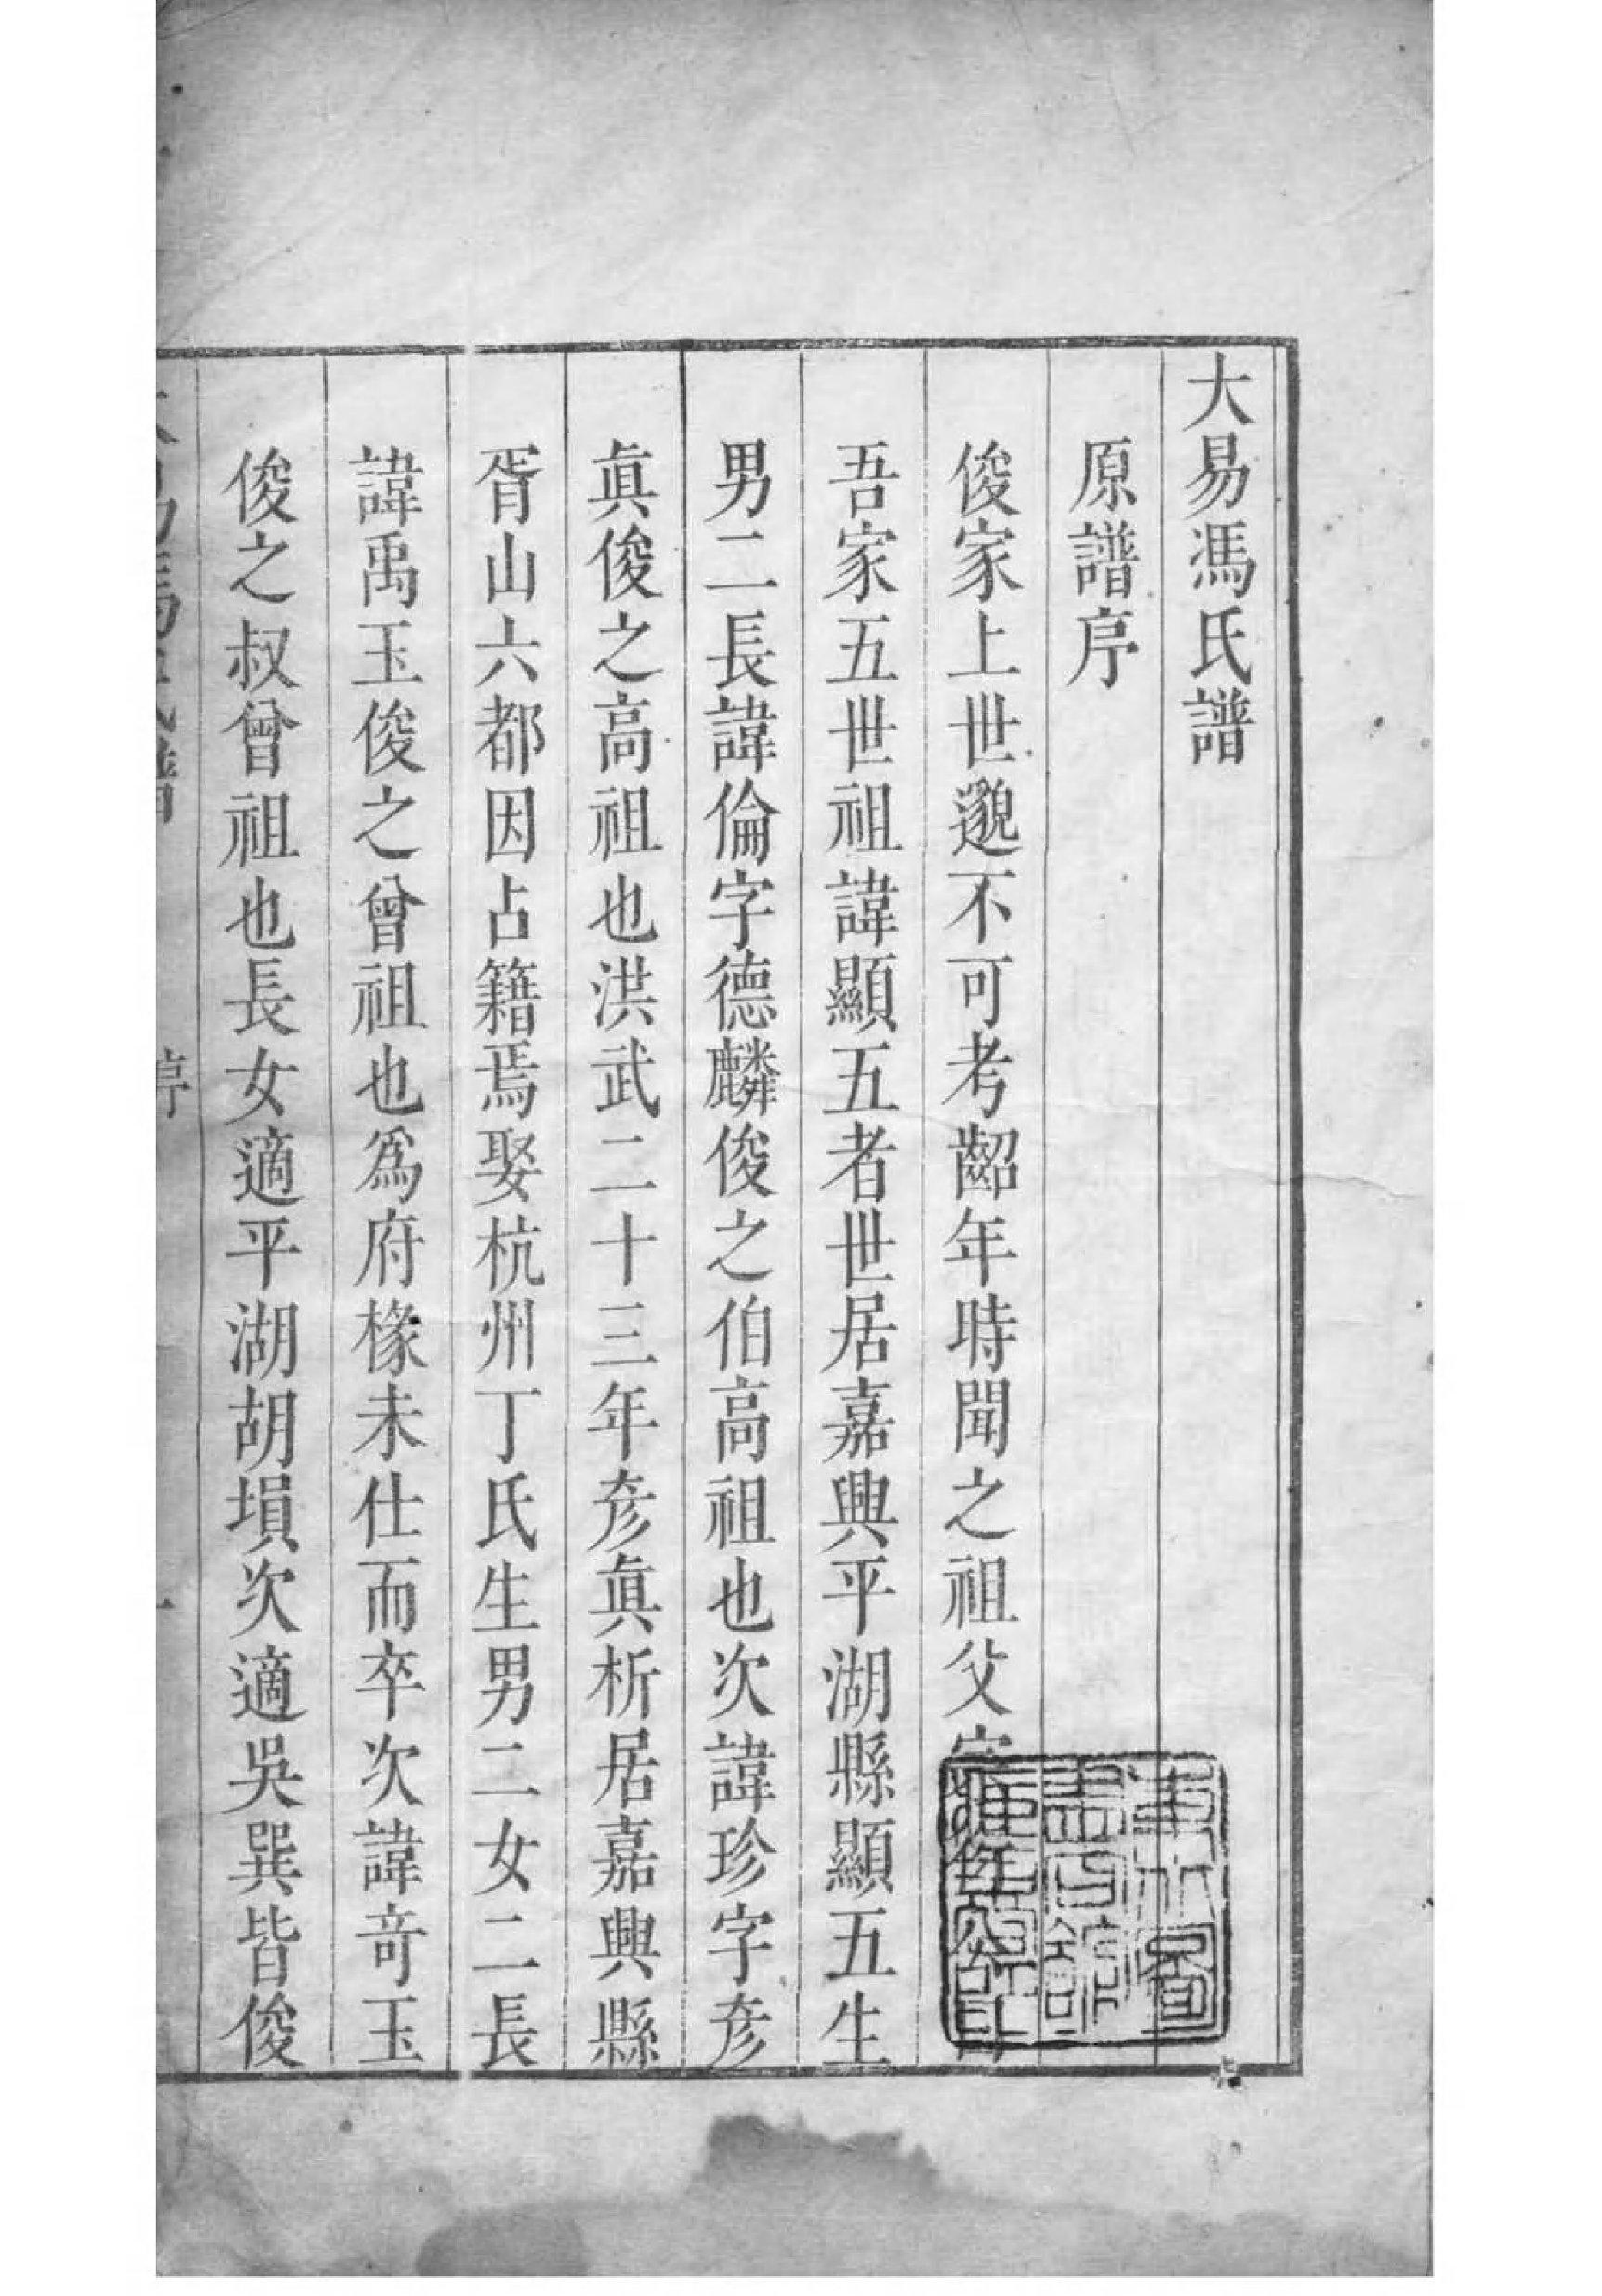 大易馮氏譜
原譜序
俊家上世邈不可考齠年時聞之祖父
吾家五世祖諱顯五者世居嘉興平湖縣顯五生
男二長諱倫字德麟俊之伯高祖也次諱珍字彥
眞俊之高祖也洪武二十三年彥眞析居嘉興縣
胥山六都因占籍焉娶杭州丁氏生男二女二長
諱禹玉俊之曾祖也爲府椽未仕而卒次諱竒玉
俊之叔曾祖也長女適平湖胡塤次適吳巽皆俊